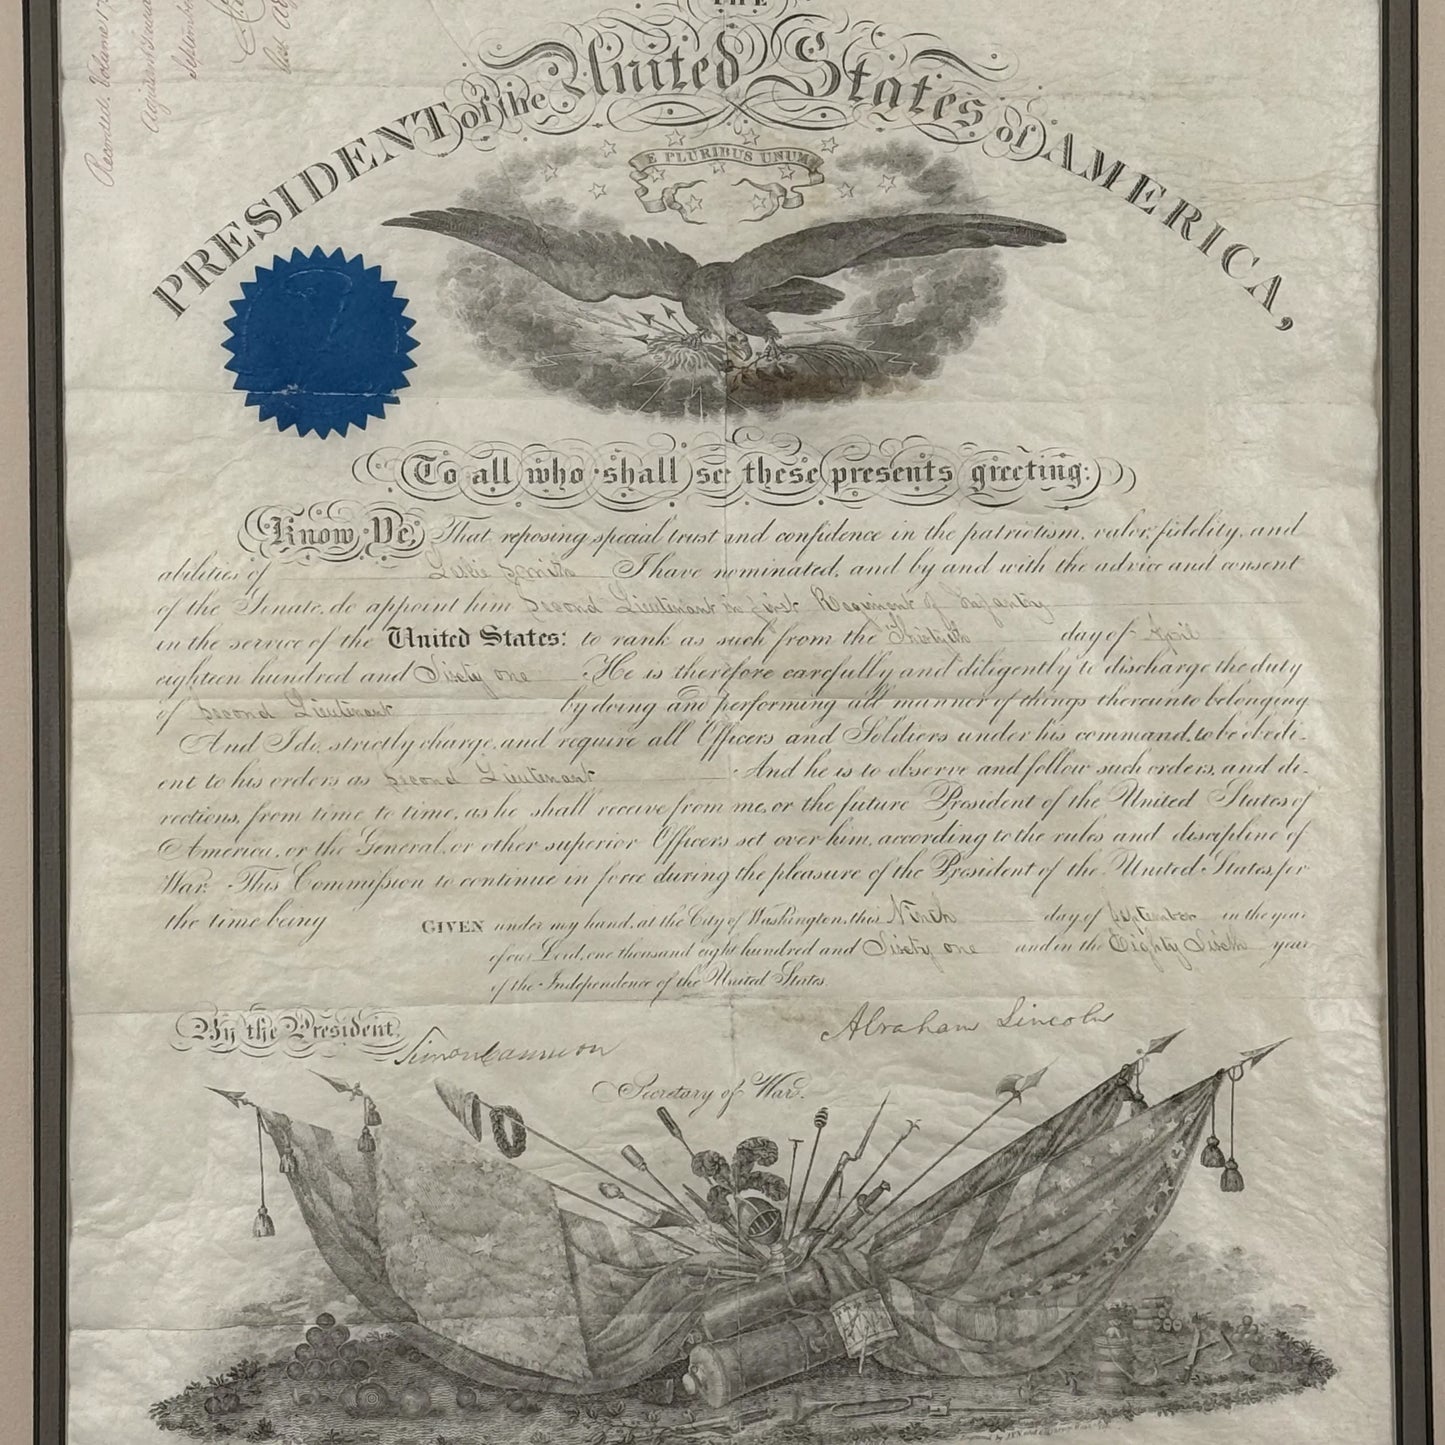 Recorded. Volume 17
September
THE
PRESIDENT of the United States of AMERICA,
E PLURIBUS UNUM
To all who shall see these presents greeting:
Know Ye, That reposing special trust and confidence in the patriotism, valor, fidelity, and
abilities of Leslie Smith I have nominated, and by and with the advice and consent
of the Senate, do appoint him Second Lieutenant in first Regiment of Infantry
in the service of the United States: to rank as such from the Thirtieth day of April
eighteen hundred and Sixty one He is therefore carefully and diligently to discharge the duty
of Second Lieutenant by doing and performing all manner of things thereunto belonging
And I do, strictly charge, and require all Officers and Soldiers under his command, to be obedi-
ent to his orders as Second Lieutenant And he is to observe and follow such orders, and di-
rections, from time to time, as he shall receive from me, or the future President of the United States of
America, or the General, or other superior Officers set over him, according to the rules and discipline of
War. This Commission to continue in force during the pleasure of the President of the United States, for
the time being
GIVEN under my hand, at the City of Washington, this Ninth day of September in the year
of our Lord, one thousand eight hundred and Sixty one and in the Eighty Sixth year
of the Independence of the United States.
By the President, Abraham Lincoln
Simon Cameron
Secretary of War.
Engraved by